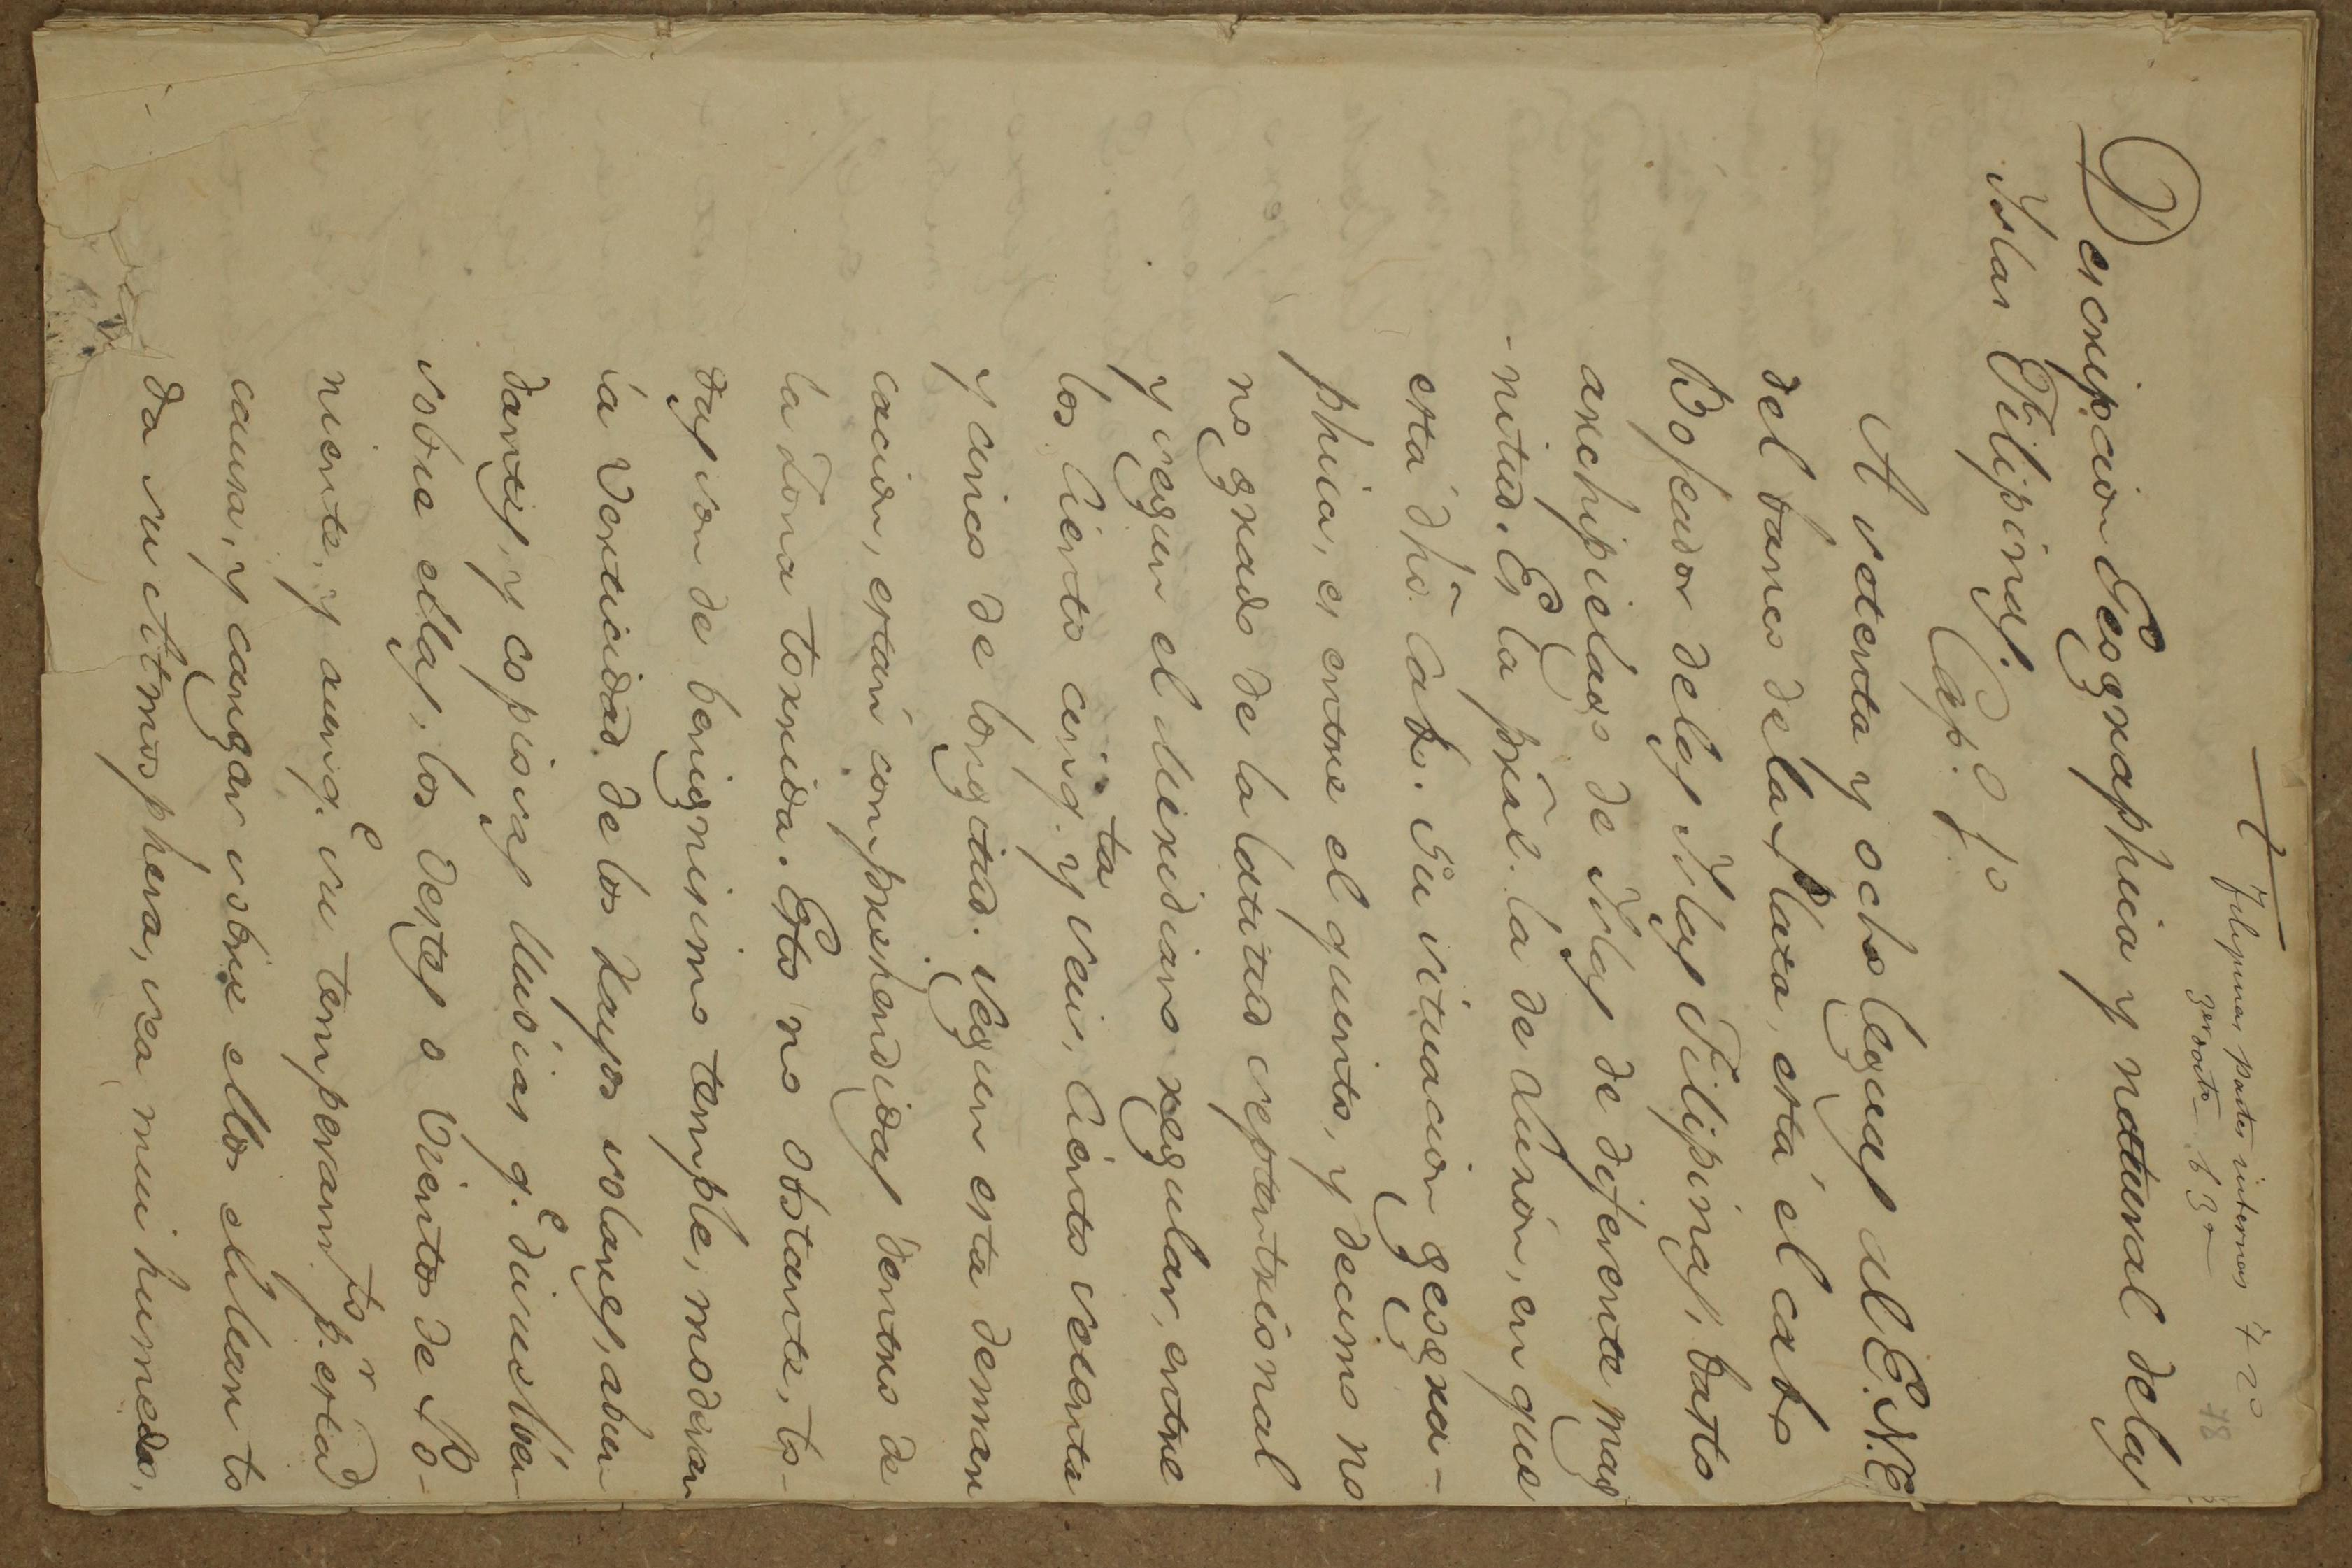 †
Filipinas partes internas 7 20
78
Descripcion Geographica y natural delas
Yslas Filipinas.
Cap.º 1º
A setenta y ocho leguas al E.N.E.
del banco dela Plata, está el cabo
Bojeador delas Yslas Filipinas, basto
archipielago de Yslas de diferente mag
-nitud. Es la prãl. la de Luson, en que
está dhõ. Cabo. Su situacion geogra-
phica, es entre el quinto, y decimo no
no grado de la latitud septentrional
y segun el Meridiano regular, entre
los Ciento cinq.ta y seis, Ciento setenta
y cinco de longitud. Segun esta demar
cacion, están comprehendidas dentro de
la Zona torrida. Esto no obstante, to-
das son de benignisimo temple, moderan
la verticidad de los Rayos solares, abun
dantes, y copiosas lluvias q.e directben
sobre ellas, los Vertes o Vientos de Po-
niente, y aunq.e su temperam.to p.r esta
causa, y cargar sobre ellos est tan to
da su Atmosphera, sea mui humedo,